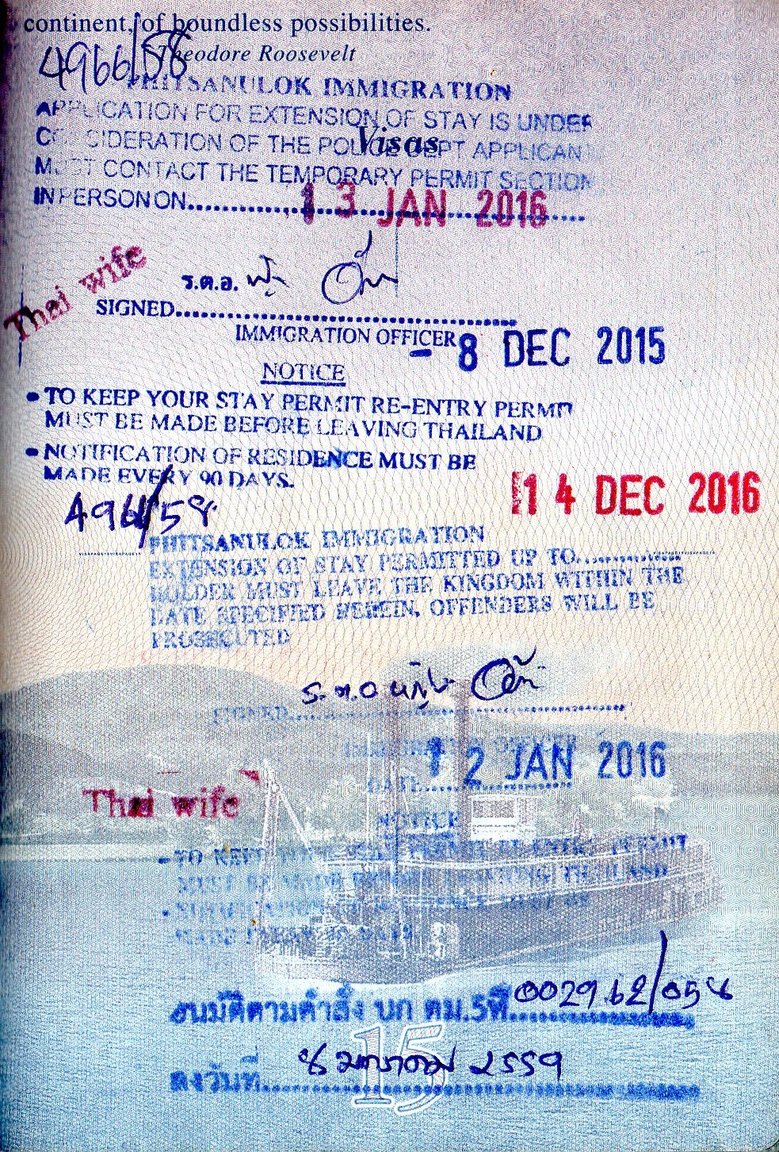 continent, of boundless possibilities.
Theodore Roosevelt
4966/58
PHITSANULOK IMMIGRATION
APPLICATION FOR EXTENSION OF STAY IS UNDER
CONSIDERATION OF THE POLICE DEPT APPLICANT
Visas
MUST CONTACT THE TEMPORARY PERMIT SECTION
IN PERSON ON
13 JAN 2016
Thai wife
ร.ต.อ.
SIGNED
IMMIGRATION OFFICER
- 8 DEC 2015
NOTICE
• TO KEEP YOUR STAY PERMIT RE-ENTRY PERMIT
MUST BE MADE BEFORE LEAVING THAILAND
• NOTIFICATION OF RESIDENCE MUST BE
MADE EVERY 90 DAYS.
14 DEC 2016
/58
PHITSANULOK IMMIGRATION
EXTENSION OF STAY PERMITTED UP TO
HOLDER MUST LEAVE THE KINGDOM WITHIN THE
DATE SPECIFIED HEREIN, OFFENDERS WILL BE
PROSECUTED
ร.ต.อ
SIGNED
IMMIGRATION OFFICER
12 JAN 2016
DATE
Thai wife
NOTICE
- TO KEEP YOUR STAY PERMIT RE-ENTRY PERMIT
MUST BE MADE BEFORE LEAVING THAILAND
- NOTIFICATION OF RESIDENCE MUST BE
MADE EVERY 90 DAYS
อนุมัติตามคำสั่ง บก ตม.5ที่ 0029.62/058
ลงวันที่ 8 มกราคม 2559
15